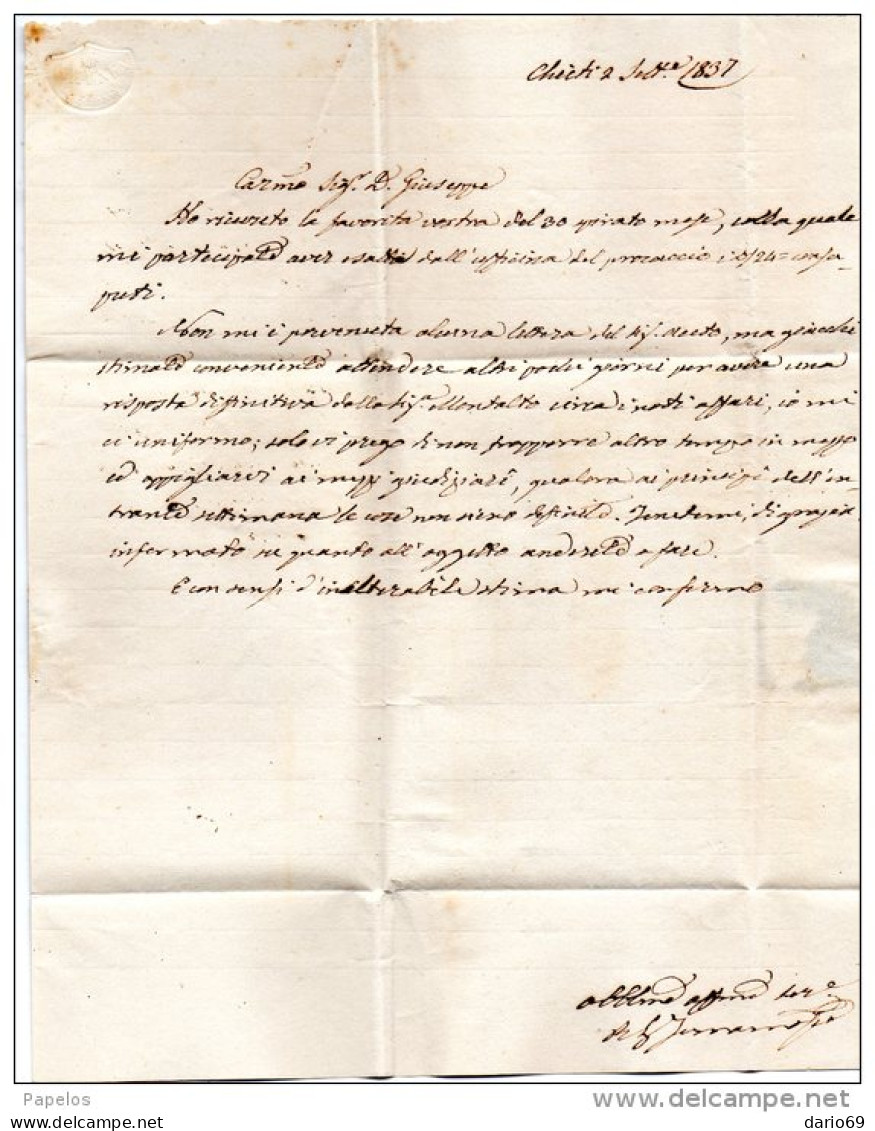 Chieti 2 Sett.e 1837
Carmo Sigr. D. Giuseppe
Ho ricevuto la favorita vostra del 30 spirato mese, colla quale
mi partecipate aver esatti dall'officina del procaccio i 24
puti.
Non mi è pervenuta alcuna lettera del Sigr. ma giacchè
stimate conveniente attendere altri pochi giorni per avere una
risposta diffinitiva dalla Sigra Montalto circa i noti affari, io mi
ci uniformo; solo vi prego di non frapporre altro tempo in mezzo
ed appigliarvi ai mezzi giudiziarî, qualora ai principî dell'en=
trante settimana le cose non sieno definite. Tenetemi, di grazia,
informato di quanto all'oggetto anderete a fare.
E con sensi d'inalterabile stima mi confermo
obblmo affmo
Papelos
delcampe.net
dario69